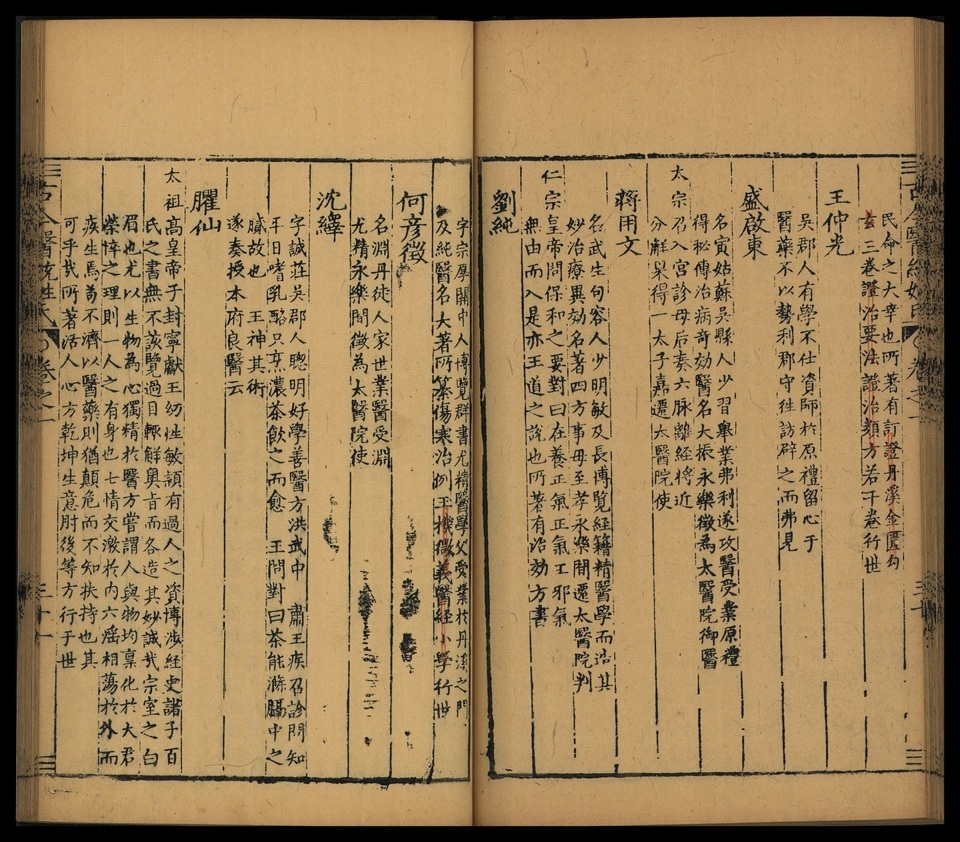 民命之大幸也所著有訂證丹溪金匱鈎
玄三卷證治要法證治類方若干卷行世
王仲光
吳郡人有學不仕資師於原禮留心于
醫藥不以勢利郡守徃訪辟之而弗見
盛啟東
名寅姑蘇吳縣人少習舉業弗利遂攻醫受業原禮
得秘傳治病奇効醫名大振永樂徵為太醫院御醫
太宗召入宮診母后奏六脉離經將近
分觧果得一太子嘉遷太醫院使
蔣用文
名武生句容人少明敏及長博覽經籍精醫學而造其
妙治療異効名著四方事毋至孝永樂間遷太醫院判
仁宗皇帝問保和之要對曰在養正氣正氣工邪氣
無由而入是亦王道之說也所著有治効方書
劉純
字宗厚關中人博覽群書尤精醫學父受業於丹溪之門
及純醫名大著所纂傷寒治例玉機微義醫經小學行世
何彥徵
名淵丹徒人家世業醫受淵
尤精永樂間徵為太醫院使
沈繹
字誠莊吳郡人聰明好學善醫方洪武中肅王疾召診問知
平日嗜乳酪只烹濃茶飲之而愈王問對曰茶能滌膈中之
膩故也王神其術
遂奏授本府良醫云
臞仙
太祖高皇帝子封寧獻王幼性敏頴有過人之資博涉經史諸子百
氏之書無不該覽過目輒觧奧旨而各造其妙誠我宗室之白
眉也尤以生物為心獨精於醫方嘗謂人與物均禀化於大君
榮悴之理則一人之有身也七情交激於内六滛相蕩於外而
疾生焉苟不濟以醫藥則猶顛危而不知扶持也其
可乎哉所著活人心方乾坤生意肘後等方行于世
古今醫統姓氏
卷之一
三十一